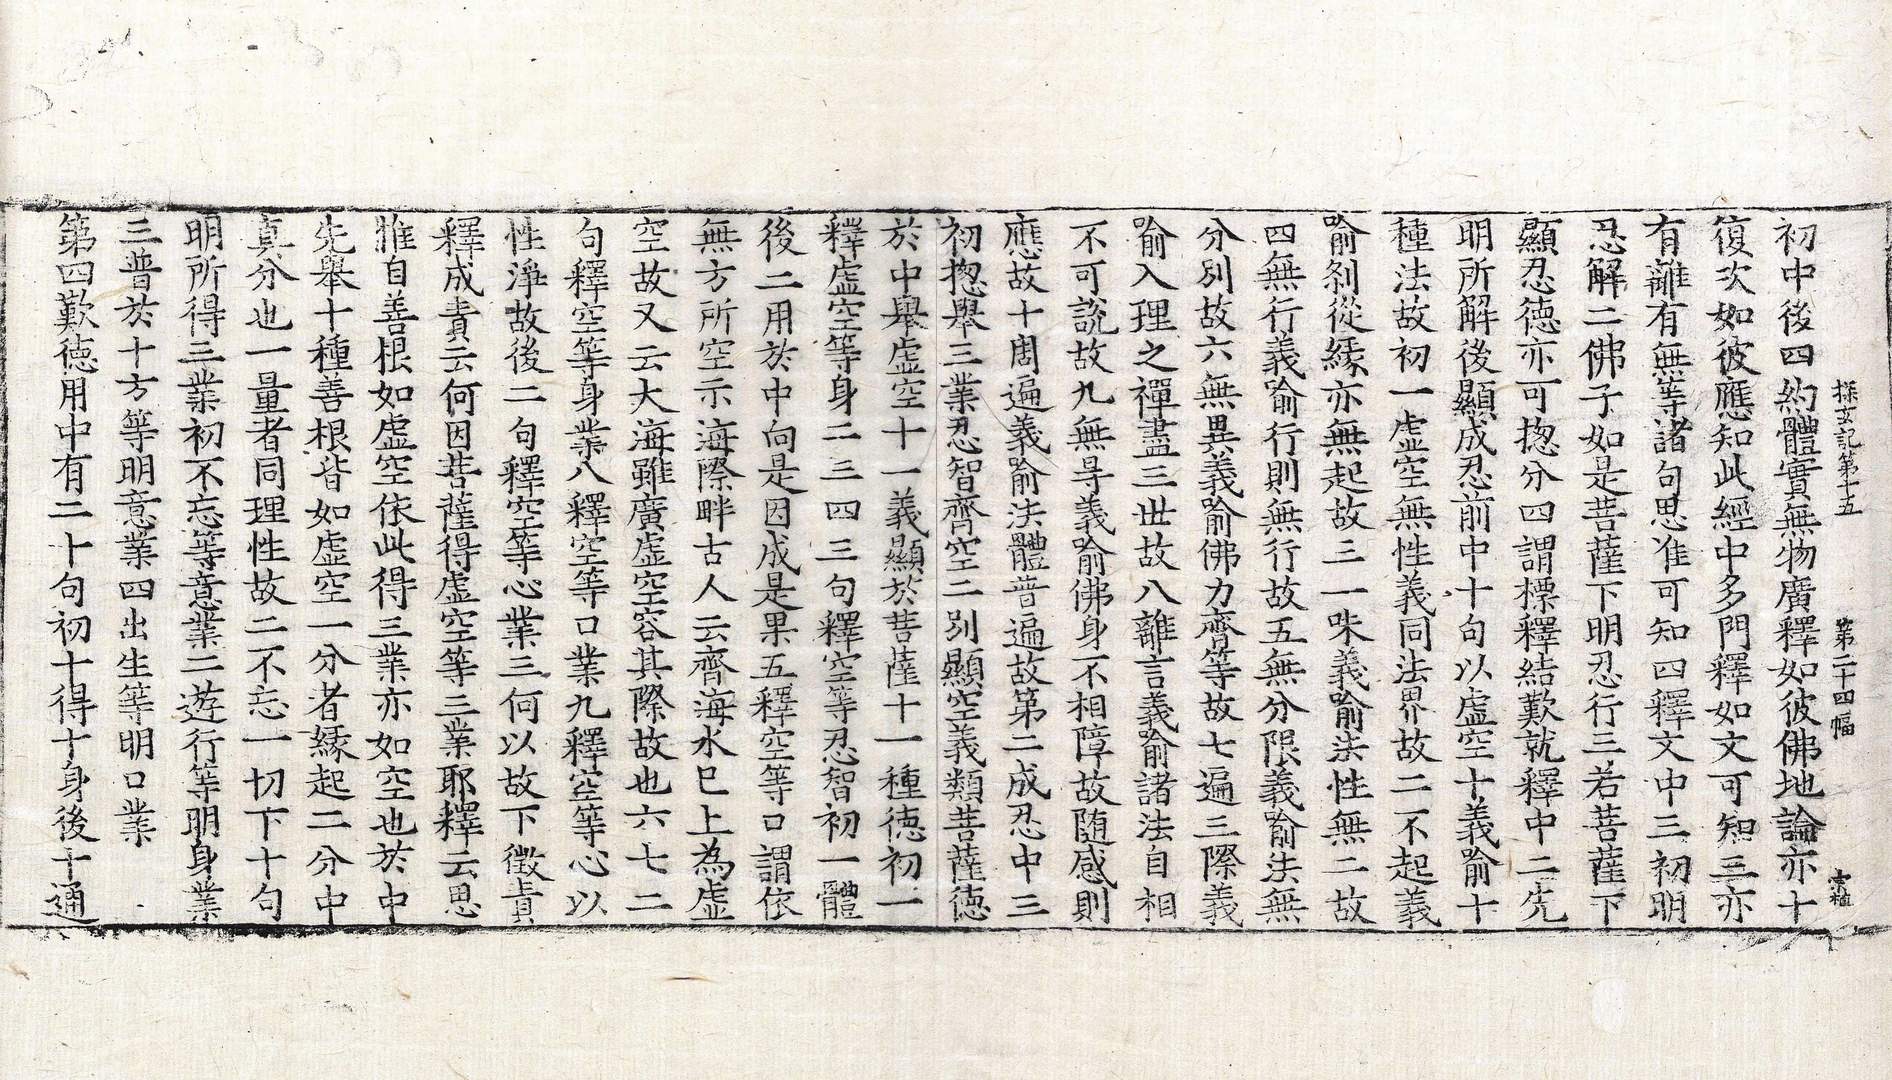 探玄記第十五　第二十四幅　宗植
初中後四約體實無物廣釋如彼佛地論亦十
復次如彼應知此經中多門釋如文可知三亦
有離有無等諸句思准可知四釋文中三初明
忍解二佛子如是菩薩下明忍行三若菩薩下
顯忍徳亦可揔分四謂標釋結歎就釋中二先
明所解後顯成忍前中十句以虚空十義喻十
種法故初一虚空無性義同法界故二不起義
喻刹從縁亦無起故三一味義喻法性無二故
四無行義喻行則無行故五無分限義喻法無
分別故六無異義喻佛力齊等故七遍三際義
喻入理之禪盡三世故八離言義喻諸法自相
不可說故九無㝵義喻佛身不相障故随感則
應故十周遍義喻法體普遍故第二成忍中三
初揔舉三業忍智齊空二別顯空義類菩薩徳
於中舉虚空十一義顯於菩薩十一種徳初一
釋虚空等身二三四三句釋空等忍智初一體
後二用於中向是因成是果五釋空等口謂依
無方所空示海際畔古人云齊海水已上為虚
空故又云大海雖廣虚空容其際故也六七二
句釋空等身業八釋空等口業九釋空等心以
性淨故後二句釋空等心業三何以故下徴責
釋成責云何因菩薩得虚空等三業耶釋云思
惟自善根如虚空依此得三業亦如空也於中
先舉十種善根皆如虚空一分者縁起二分中
真分也一量者同理性故二不忘一切下十句
明所得三業初不忘等意業二遊行等明身業
三普於十方等明意業四出生等明口業
第四歎徳用中有二十句初十得十身後十通